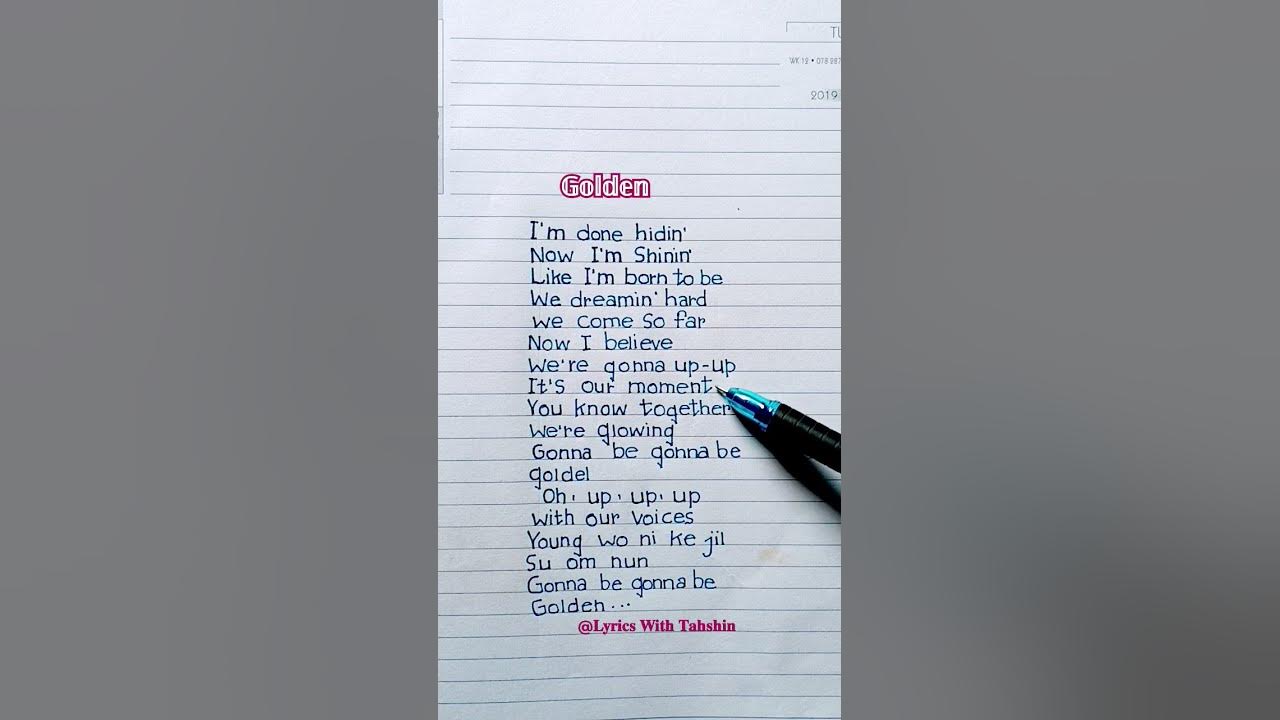 TU
WK 12 • 078 287
2019
Golden
I'm done hidin'
Now I'm Shinin'
Like I'm born to be
We dreamin' hard
We come So far
Now I believe
We're gonna up-up
It's our moment
You know together
We're glowing
Gonna be gonna be
goldel
Oh, up, up, up
With our Voices
Young wo ni ke jil
Su om nun
Gonna be gonna be
Golden...
@Lyrics With Tahshin